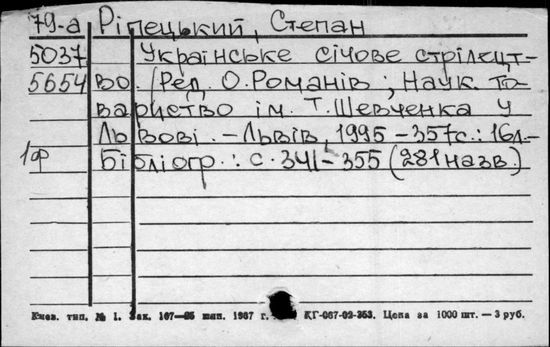 79-а Ріпецький, Степан
5037 Українське січове стрілецт-
5654 во. /Ред. О.Романів ; Наук. то-
вариство ім. Т.Шевченка у
Львові. – Львів, 1995 – 357с.: 16л.–
1ф Бібліогр.: с.341–355 (281назв.)
Киев. тип. № 1. Зак. 107—85 шп. 1987 г. КГ-067-02-353. Цена за 1000 шт. — 3 руб.